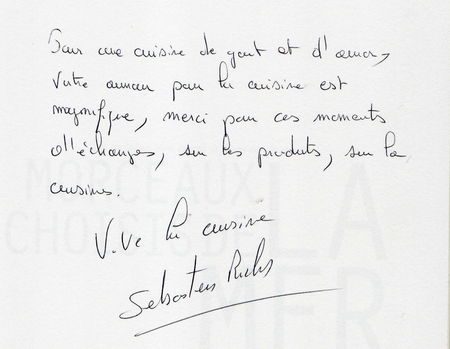 Pour une cuisine de gout et d'amour,
Votre amour pour la cuisine est
magnifique, merci pour ces moments
d'échanges, sur les produits, sur la
cuisine.
MORCEAUX
CHOISIS
LA
MER
Vive la cuisine
Sébastien